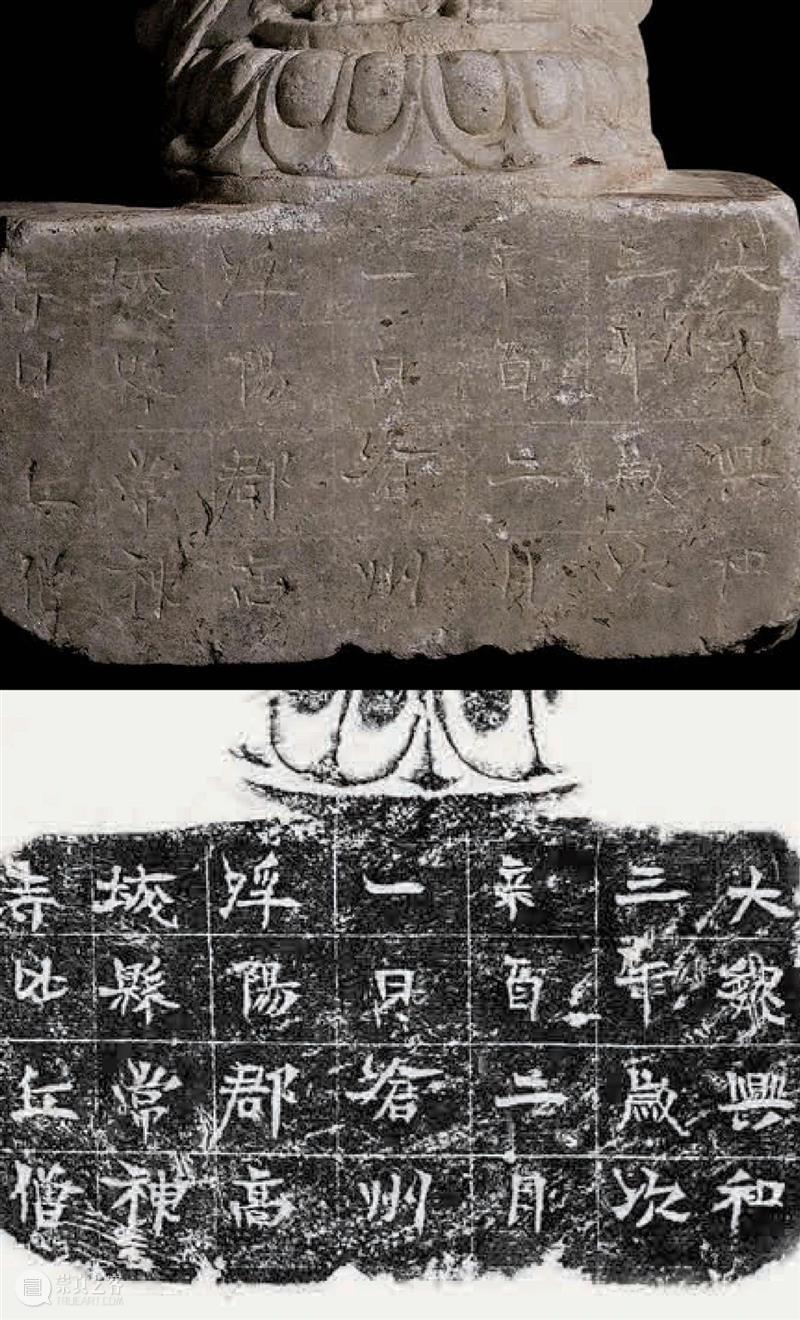 大魏興和
三年歲次
辛酉二月
一日滄州
浮陽郡高
城縣常神
寺比丘僧
大魏興和
三年歲次
辛酉二月
一日滄州
浮陽郡高
城縣常神
寺比丘僧
崇真艺客
TRUEART.COM